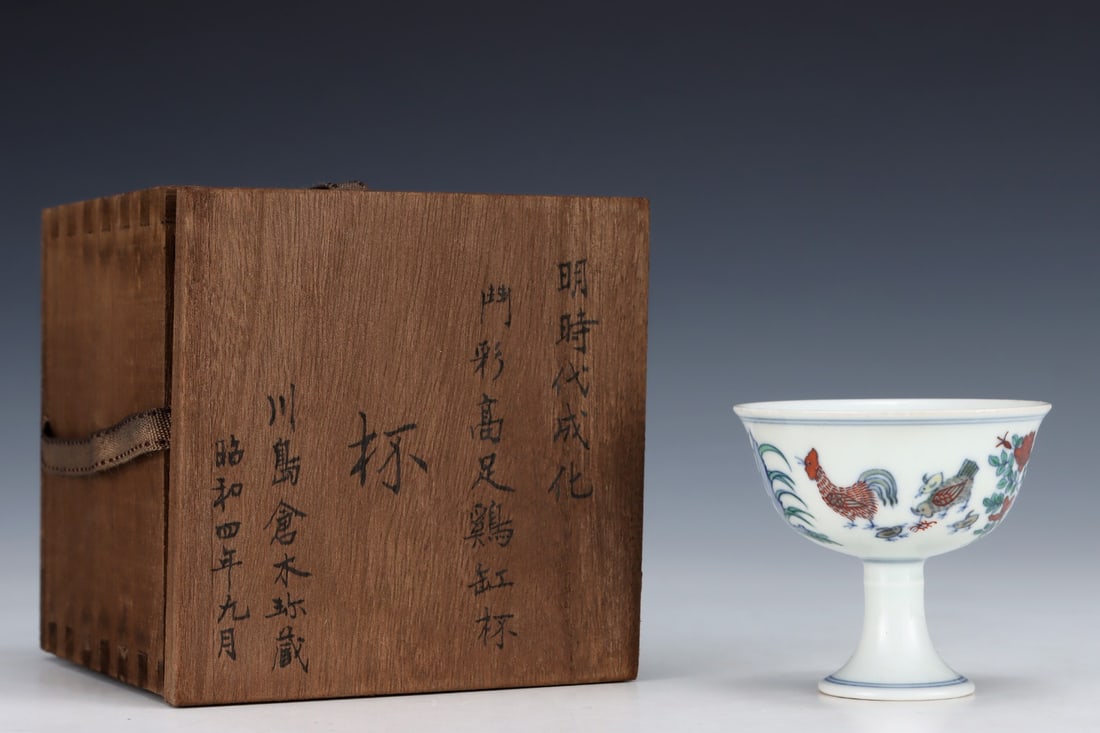 明時代成化
鬥彩高足鷄缸杯
杯
川島倉木珎蔵
昭和四年九月